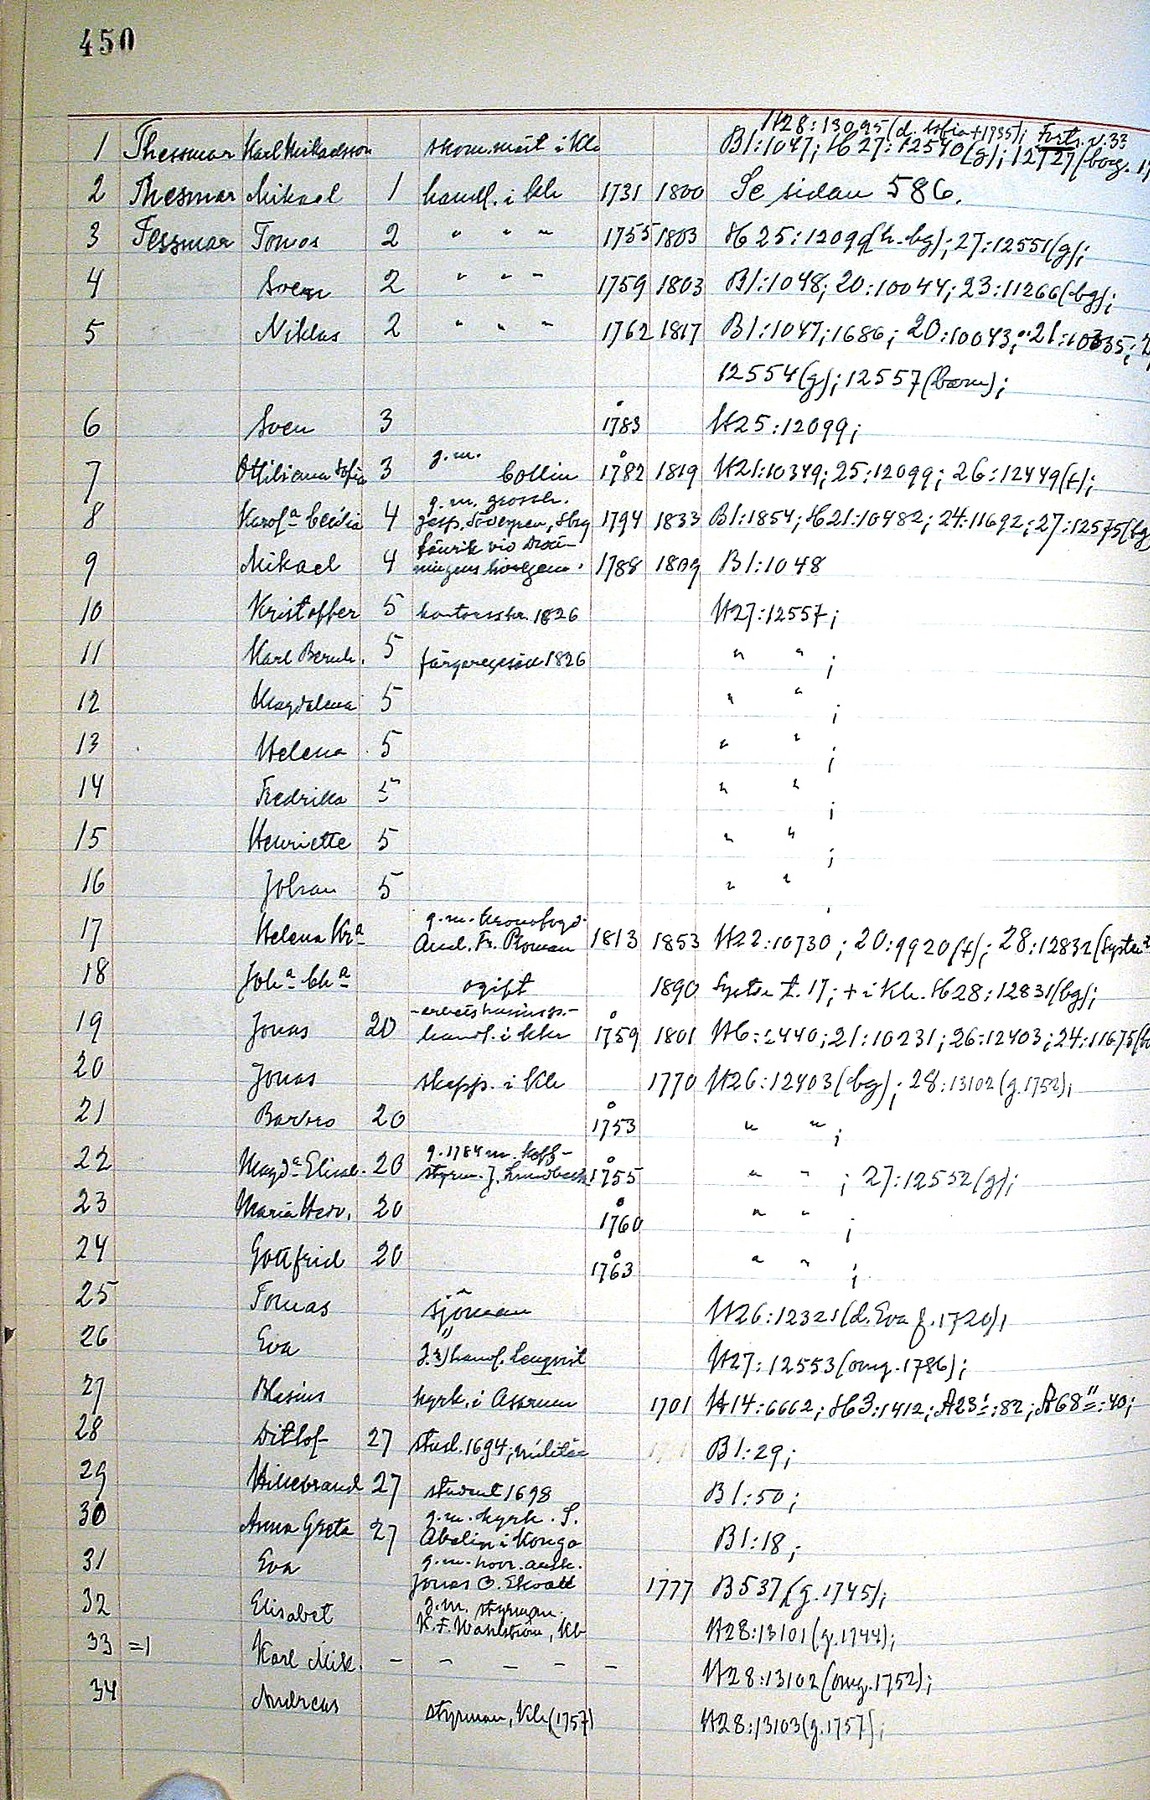 450
H28:13095 (d. Sofia +1735); Forts. n. 33
1 Thessmar Karl Mikaelsson skom.mäst. i Kla B1:1047; H27:12540(g); 12727(borg.
2 Thesmar Mikael 1 handl. i Kla 1731 1800 Se sidan 586.
3 Fessmar Tomas 2 " " " 1755 1803 H25:12099(h.bg); 27:12551(g);
4 Sven 2 " " " 1759 1803 B1:1048; 20:10044; 23:11266(bg);
5 Niklas 2 " " " 1762 1817 B1:1047; 1686; 20:10043; 21:10335;
12554(g); 12557(barn);
6 Sven 3 1783 H25:12099;
7 Ottiliana Sofia 3 g.m. Collin 1782 1819 H21:10349; 25:12099; 26:12449(+);
g.m. grossh.
8 Karol:a Cecilia 4 1794 1833 B1:1854; H21:10482; 24:11692; 27:12575(bg
fänrik vid Drott-
9 Mikael 4 ningens livregem. 1788 1809 B1:1048
10 Kristoffer 5 kontorsskr. 1826 H27:12557;
11 Karl Bernh. 5 färgaregesäll 1826 " " ;
12 Magdalena 5 " " ;
13 Helena 5 " " ;
14 Fredrika 5 " " ;
15 Henriette 5 " " ;
16 Johan 5 " " ;
g.m. kronofogd.
17 Helena Kr:a And. Fr. Roman 1813 1853 H22:10730; 20:9920(+); 28:12832(Syster
18 Joh:a Ch:a ogift 1890 Syster t. 17; + i Kla. H28:12831(bg);
19 Jonas 20 handl. i Kla 1759 1801 H6:2440; 21:10231; 26:12403; 24:11675(
20 Jonas skepp. i Kla 1770 H26:12403(bg); 28:13102(g.1752);
21 Barbro 20 1753 " " ;
g. 1784 m. koff-
22 Magd:a Elisab. 20 styrm. J. Lundbeck 1755 " " ; 27:12552(g);
23 Maria Hedv. 20 1760 " " ;
24 Gottfrid 20 1763 " " ;
25 Tomas sjöman H26:12321(d. Eva f. 1720);
26 Eva handl. Lengvist H27:12553(omg. 1786);
27 Blasius kyrk. i Assrum 1701 H14:6662; H3:1412; A23:82; A68:40;
28 Ditlof 27 stud. 1694; militär B1:29;
29 Hillebrand 27 student 1698 B1:50;
g.m. kyrk. S.
30 Anna Greta 27 Abelin i Konga B1:18;
g.m. hovr. ausk.
31 Eva Jonas O. Ekwall 1777 B537(g.1745);
g.m. styrman
32 Elisabet K.F. Wahlström, Kla H28:13101(g.1744);
33 =1 Karl Mik. – – – – – H28:13102(omg.1752);
34 Andreas styrman, Kla (1757) H28:13103(g.1757);